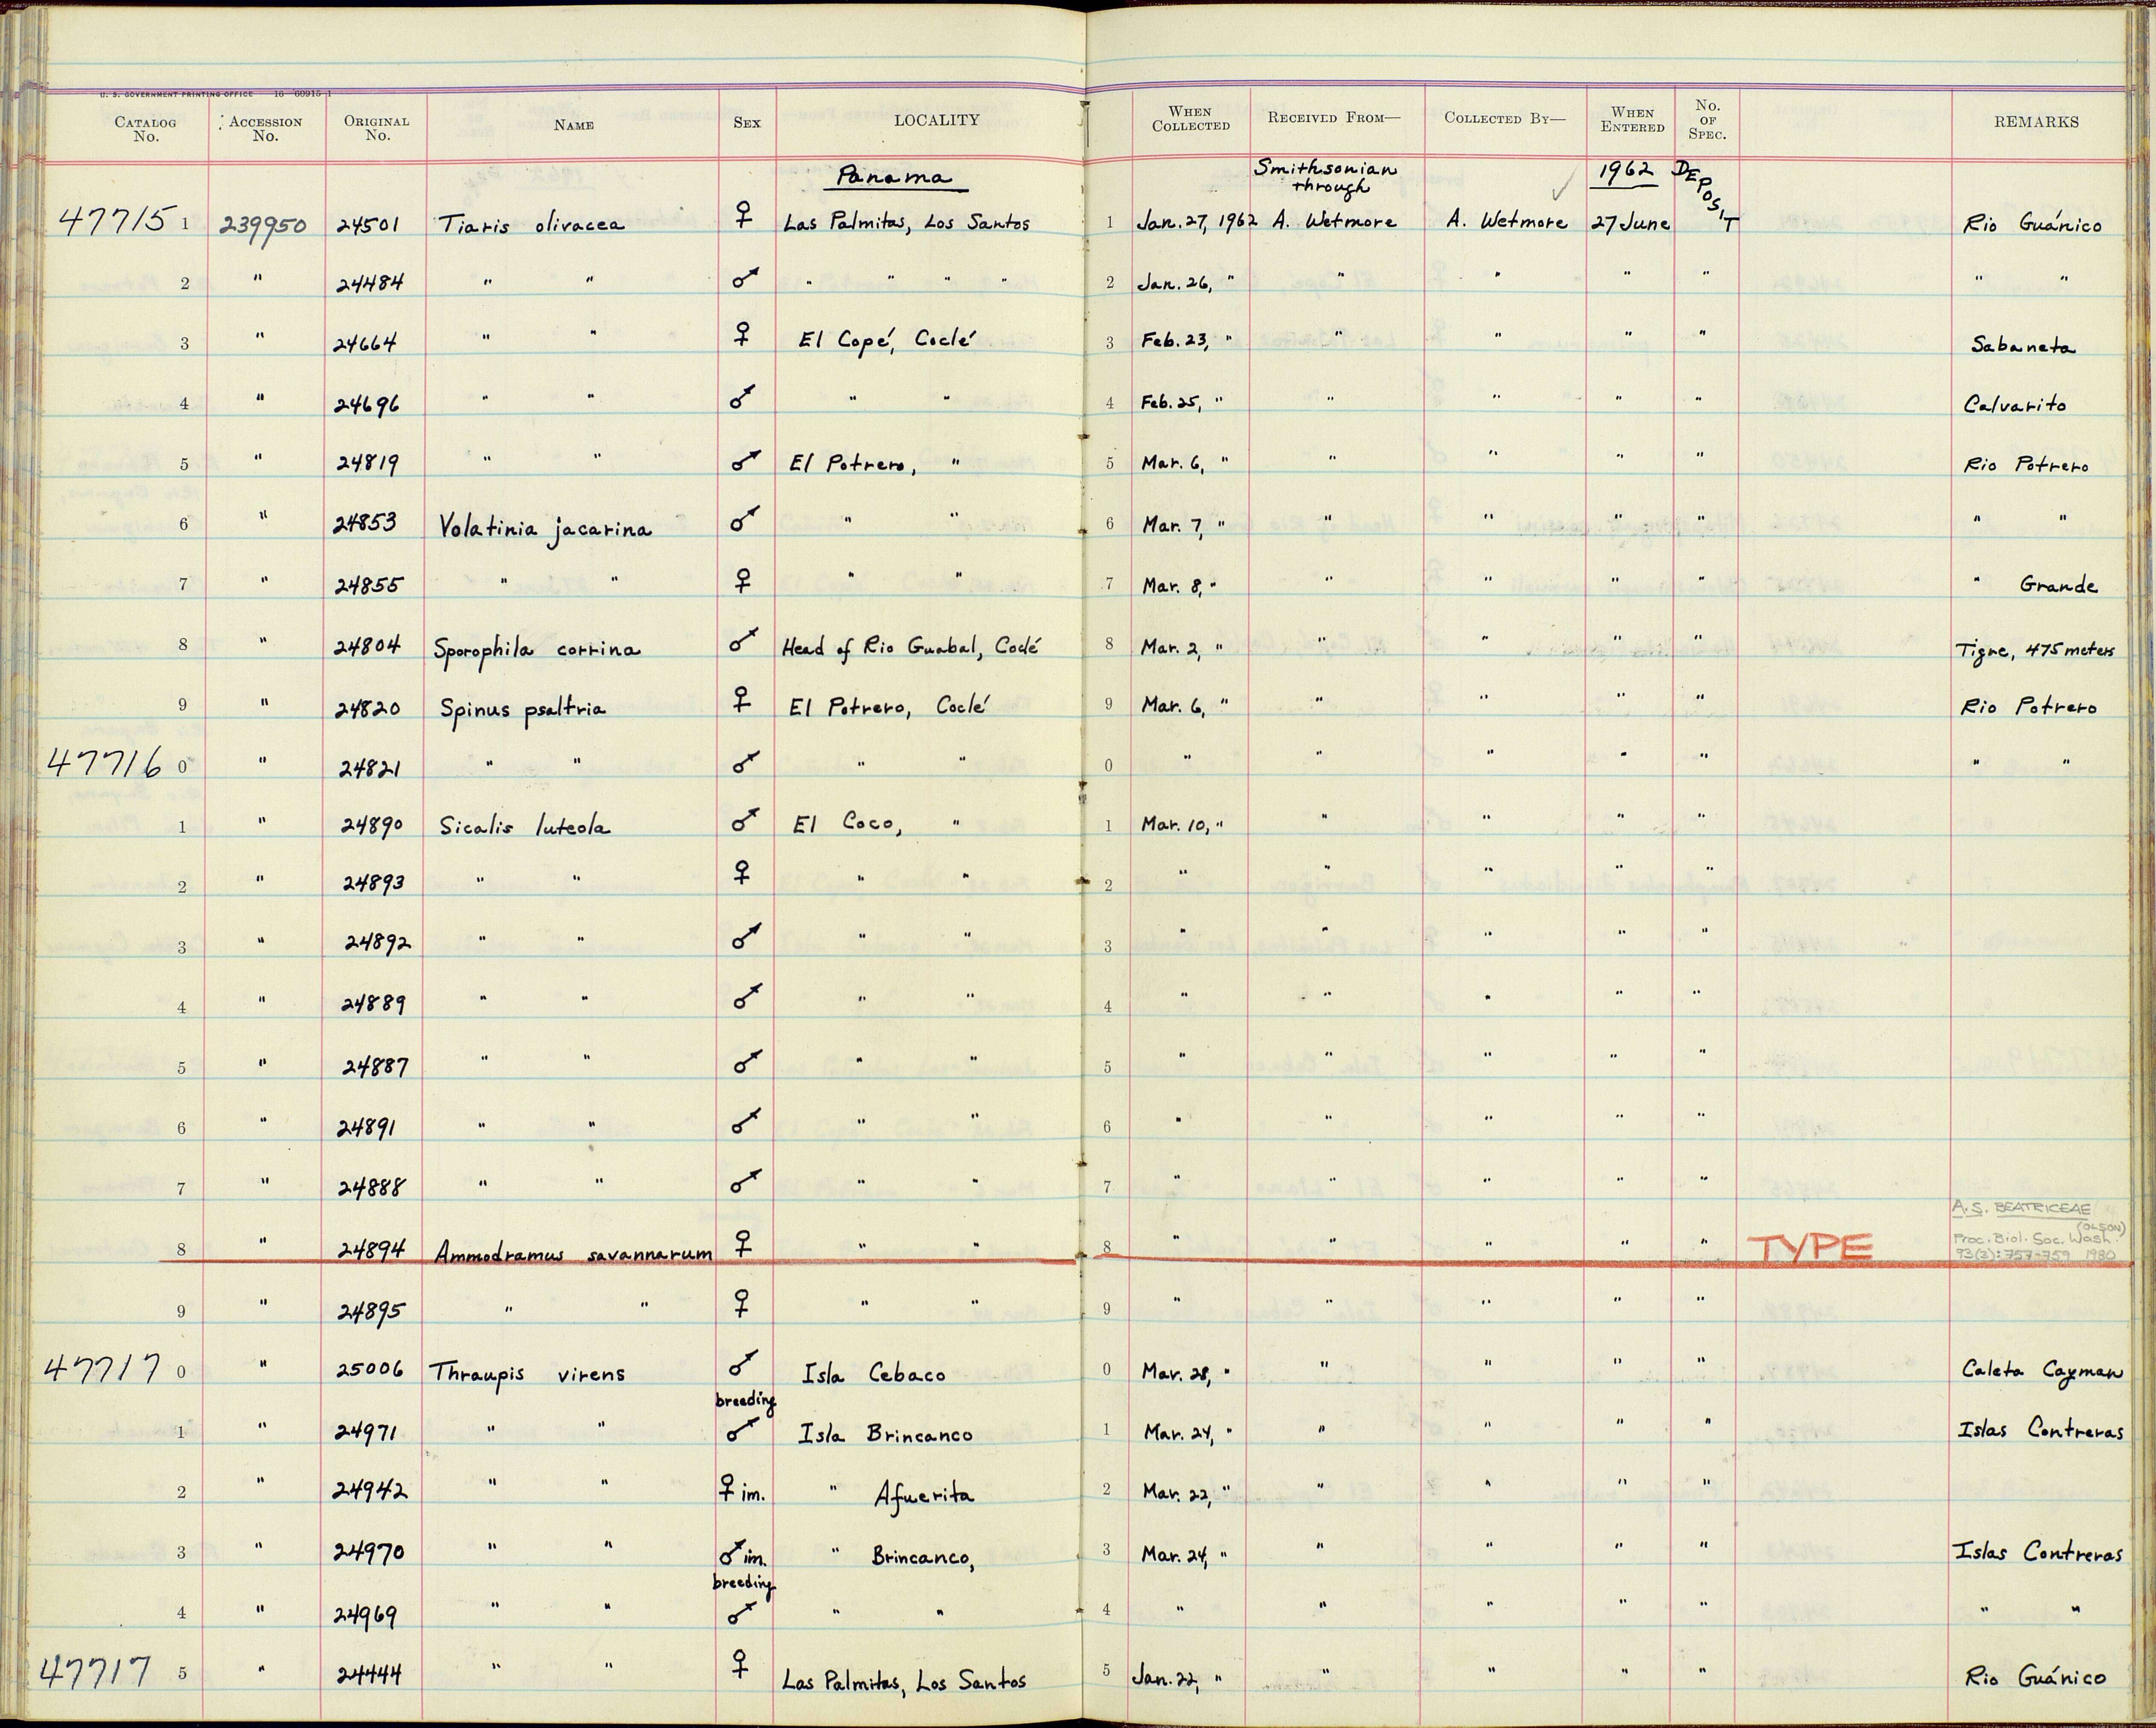 U. S. GOVERNMENT PRINTING OFFICE 16—60915-1
CATALOG No. ACCESSION No. ORIGINAL No. NAME SEX LOCALITY WHEN COLLECTED RECEIVED FROM— COLLECTED BY— WHEN ENTERED No. OF SPEC. REMARKS
Panama Smithsonian through 1962 DEPOSIT
47715 1 239950 24501 Tiaris olivacea ♀ Las Palmitas, Los Santos 1 Jan. 27, 1962 A. Wetmore A. Wetmore 27 June Rio Guánico
2 " 24484 " " ♂ " " " " 2 Jan. 26, " " " " " " "
3 " 24664 " " ♀ El Copé, Coclé 3 Feb. 23, " " " " " Sabaneta
4 " 24696 " " ♂ " " 4 Feb. 25, " " " " " Calvarito
5 " 24819 " " ♂ El Potrero, " 5 Mar. 6, " " " " " Rio Potrero
6 " 24853 Volatinia jacarina ♂ " " 6 Mar. 7, " " " " " " "
7 " 24855 " " ♀ " " 7 Mar. 8, " " " " " " Grande
8 " 24804 Sporophila corrina ♂ Head of Rio Guabal, Coclé 8 Mar. 2, " " " " " Tigre, 475 meters
9 " 24820 Spinus psaltria ♀ El Potrero, Coclé 9 Mar. 6, " " " " " Rio Potrero
47716 0 " 24821 " " ♂ " " 0 " " " " " " "
1 " 24890 Sicalis luteola ♂ El Coco, " 1 Mar. 10, " " " " "
2 " 24893 " " ♀ " " 2 " " " " "
3 " 24892 " " ♂ " " 3 " " " " "
4 " 24889 " " ♂ " " 4 " " " " "
5 " 24887 " " ♂ " " 5 " " " " "
6 " 24891 " " ♂ " " 6 " " " " "
7 " 24888 " " ♂ " " 7 " " " " "
8 " 24894 Ammodramus savannarum ♀ " " 8 " " " " " TYPE A. S. BEATRICEAE (OLSON) Proc. Biol. Soc. Wash. 93(3):757-759 1980
9 " 24895 " " ♀ " " 9 " " " " "
47717 0 " 25006 Thraupis virens ♂ Isla Cebaco 0 Mar. 28, " " " " " Caleta Cayman
1 " 24971 " " breeding ♂ Isla Brincanco 1 Mar. 24, " " " " " Islas Contreras
2 " 24942 " " ♀ im. " Afuerita 2 Mar. 22, " " " " "
3 " 24970 " " ♂ im. " Brincanco, 3 Mar. 24, " " " " " Islas Contreras
4 " 24969 " " breeding ♂ " " 4 " " " " " " "
47717 5 " 24444 " " ♀ Las Palmitas, Los Santos 5 Jan. 22, " " " " " Rio Guánico